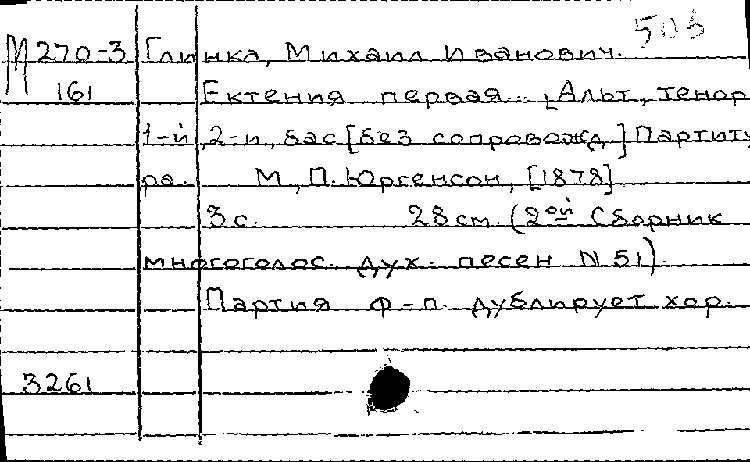 М 270-3 Глинка, Михаил Иванович.
161 Ектения первая... [Альт, тенор
1-й, 2-й, бас [без сопровожд.] Партиту
ра. М., П. Юргенсон, [1878]
3 с. 28 см. (2-ой Сборник
многоголос. дух. песен N 51)
Партия ф-п. дублирует хор.
3261